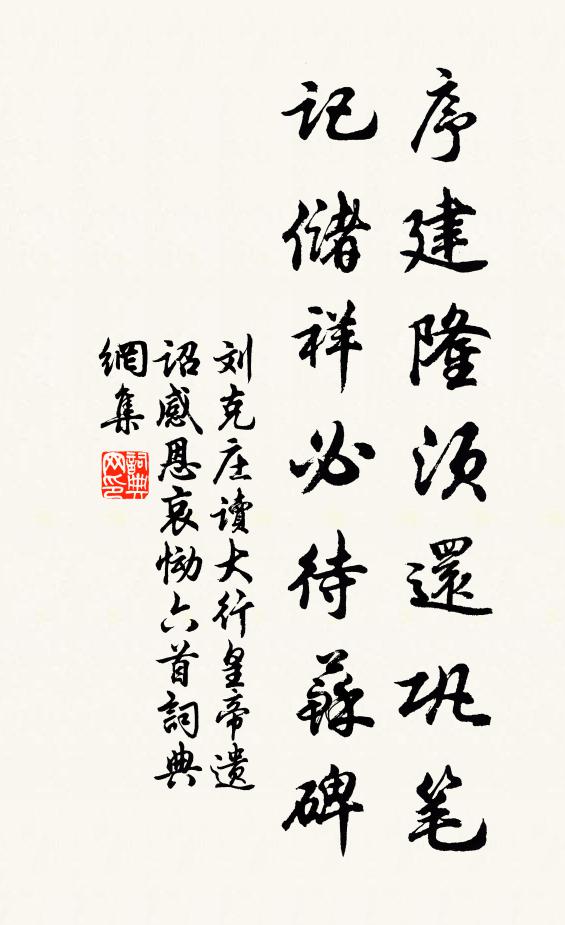 序建隆須還巩笔
記儲祥必待蘇碑
刘克庄讀大行皇帝遗
詔感恩哀慟六首詞典
網集
詞典
网印